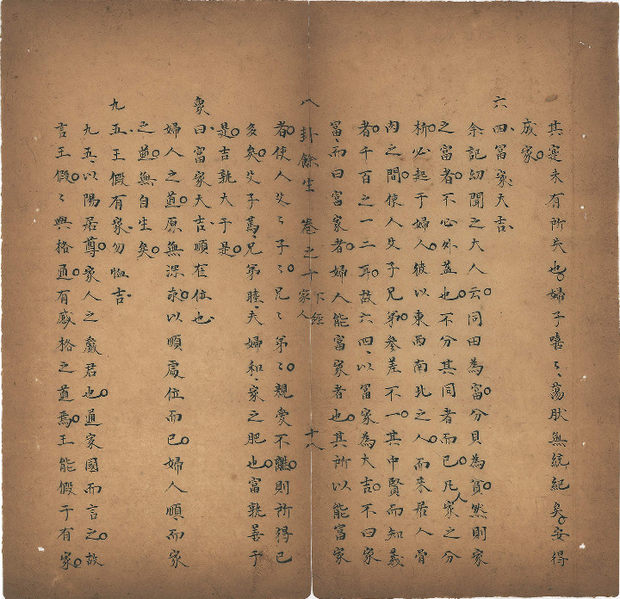 其寔未有所失也婦子嘻〻蕩肰無統紀矣安得
成家
六四富家大吉
余記幼聞之夫人云同田為富分貝為貧然則家
之富者不必外益也不分其同者而已凡人家之分
析必起于婦人彼以東西南北之人而来居人骨
肉之間使人父子兄弟參差不一其中賢而知義
者千百之一二耳故六四以富家為大吉不曰家
富而曰富家者婦人能富家者也其所以能富家
八卦餘生 卷之十 下經 家人 十八
者使人父〻子〻兄〻弟〻親愛不離則所得已
多矣父子篤兄弟睦夫婦和家之肥也富孰善于
是吉孰大于是
象曰富家大吉順在位也
婦人之道原無深求以順處位而已婦人順而家
之道無自生矣
九五王假有家勿恤吉
九五以陽居尊家人之嚴君也道家國而言之故
言王假〻與格通有感格之道焉王能假于有家